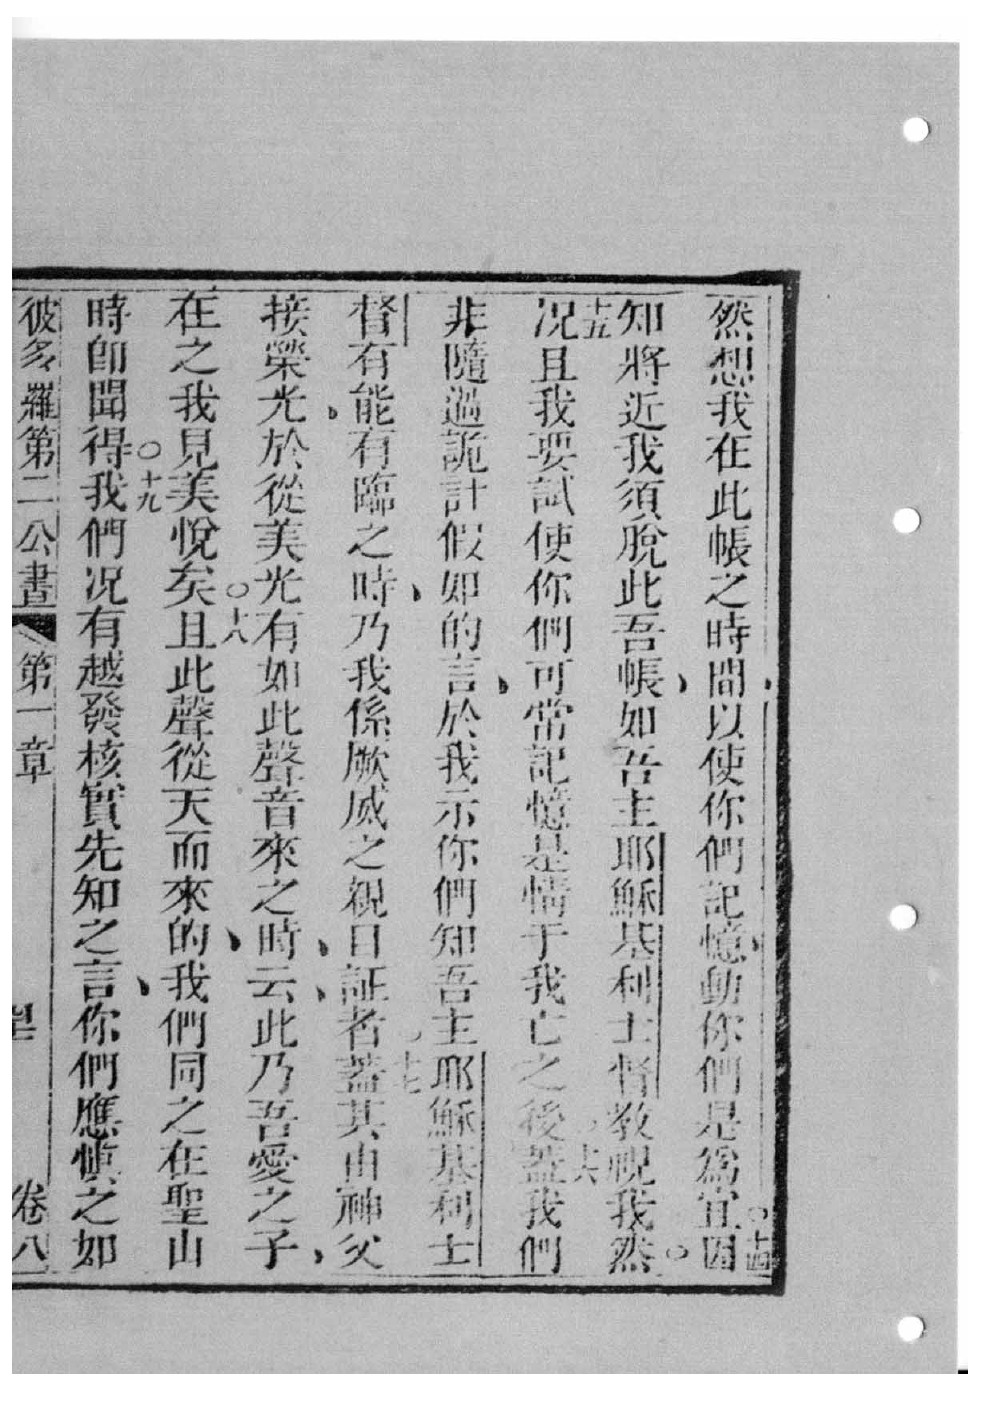 然想我在此帳之時間以使你們記憶動你們是為宜○十四因
知將近我須脫此吾帳如吾主耶穌基利士督教視我然○
十五况且我要試使你們可常記憶是情于我亡之後○十六蓋我們
非隨過詭計假如的言於我示你們知吾主耶穌基利士
督有能有臨之時乃我係厥威之親目証者○十七蓋其由神父
接榮光於從美光有如此聲音來之時云此乃吾愛之子
在之我見美悅矣○十八且此聲從天而來的我們同之在聖山
時卽聞得○十九我們况有越發核實先知之言你們應慎之如
彼多羅第二公書 第一章 卷八